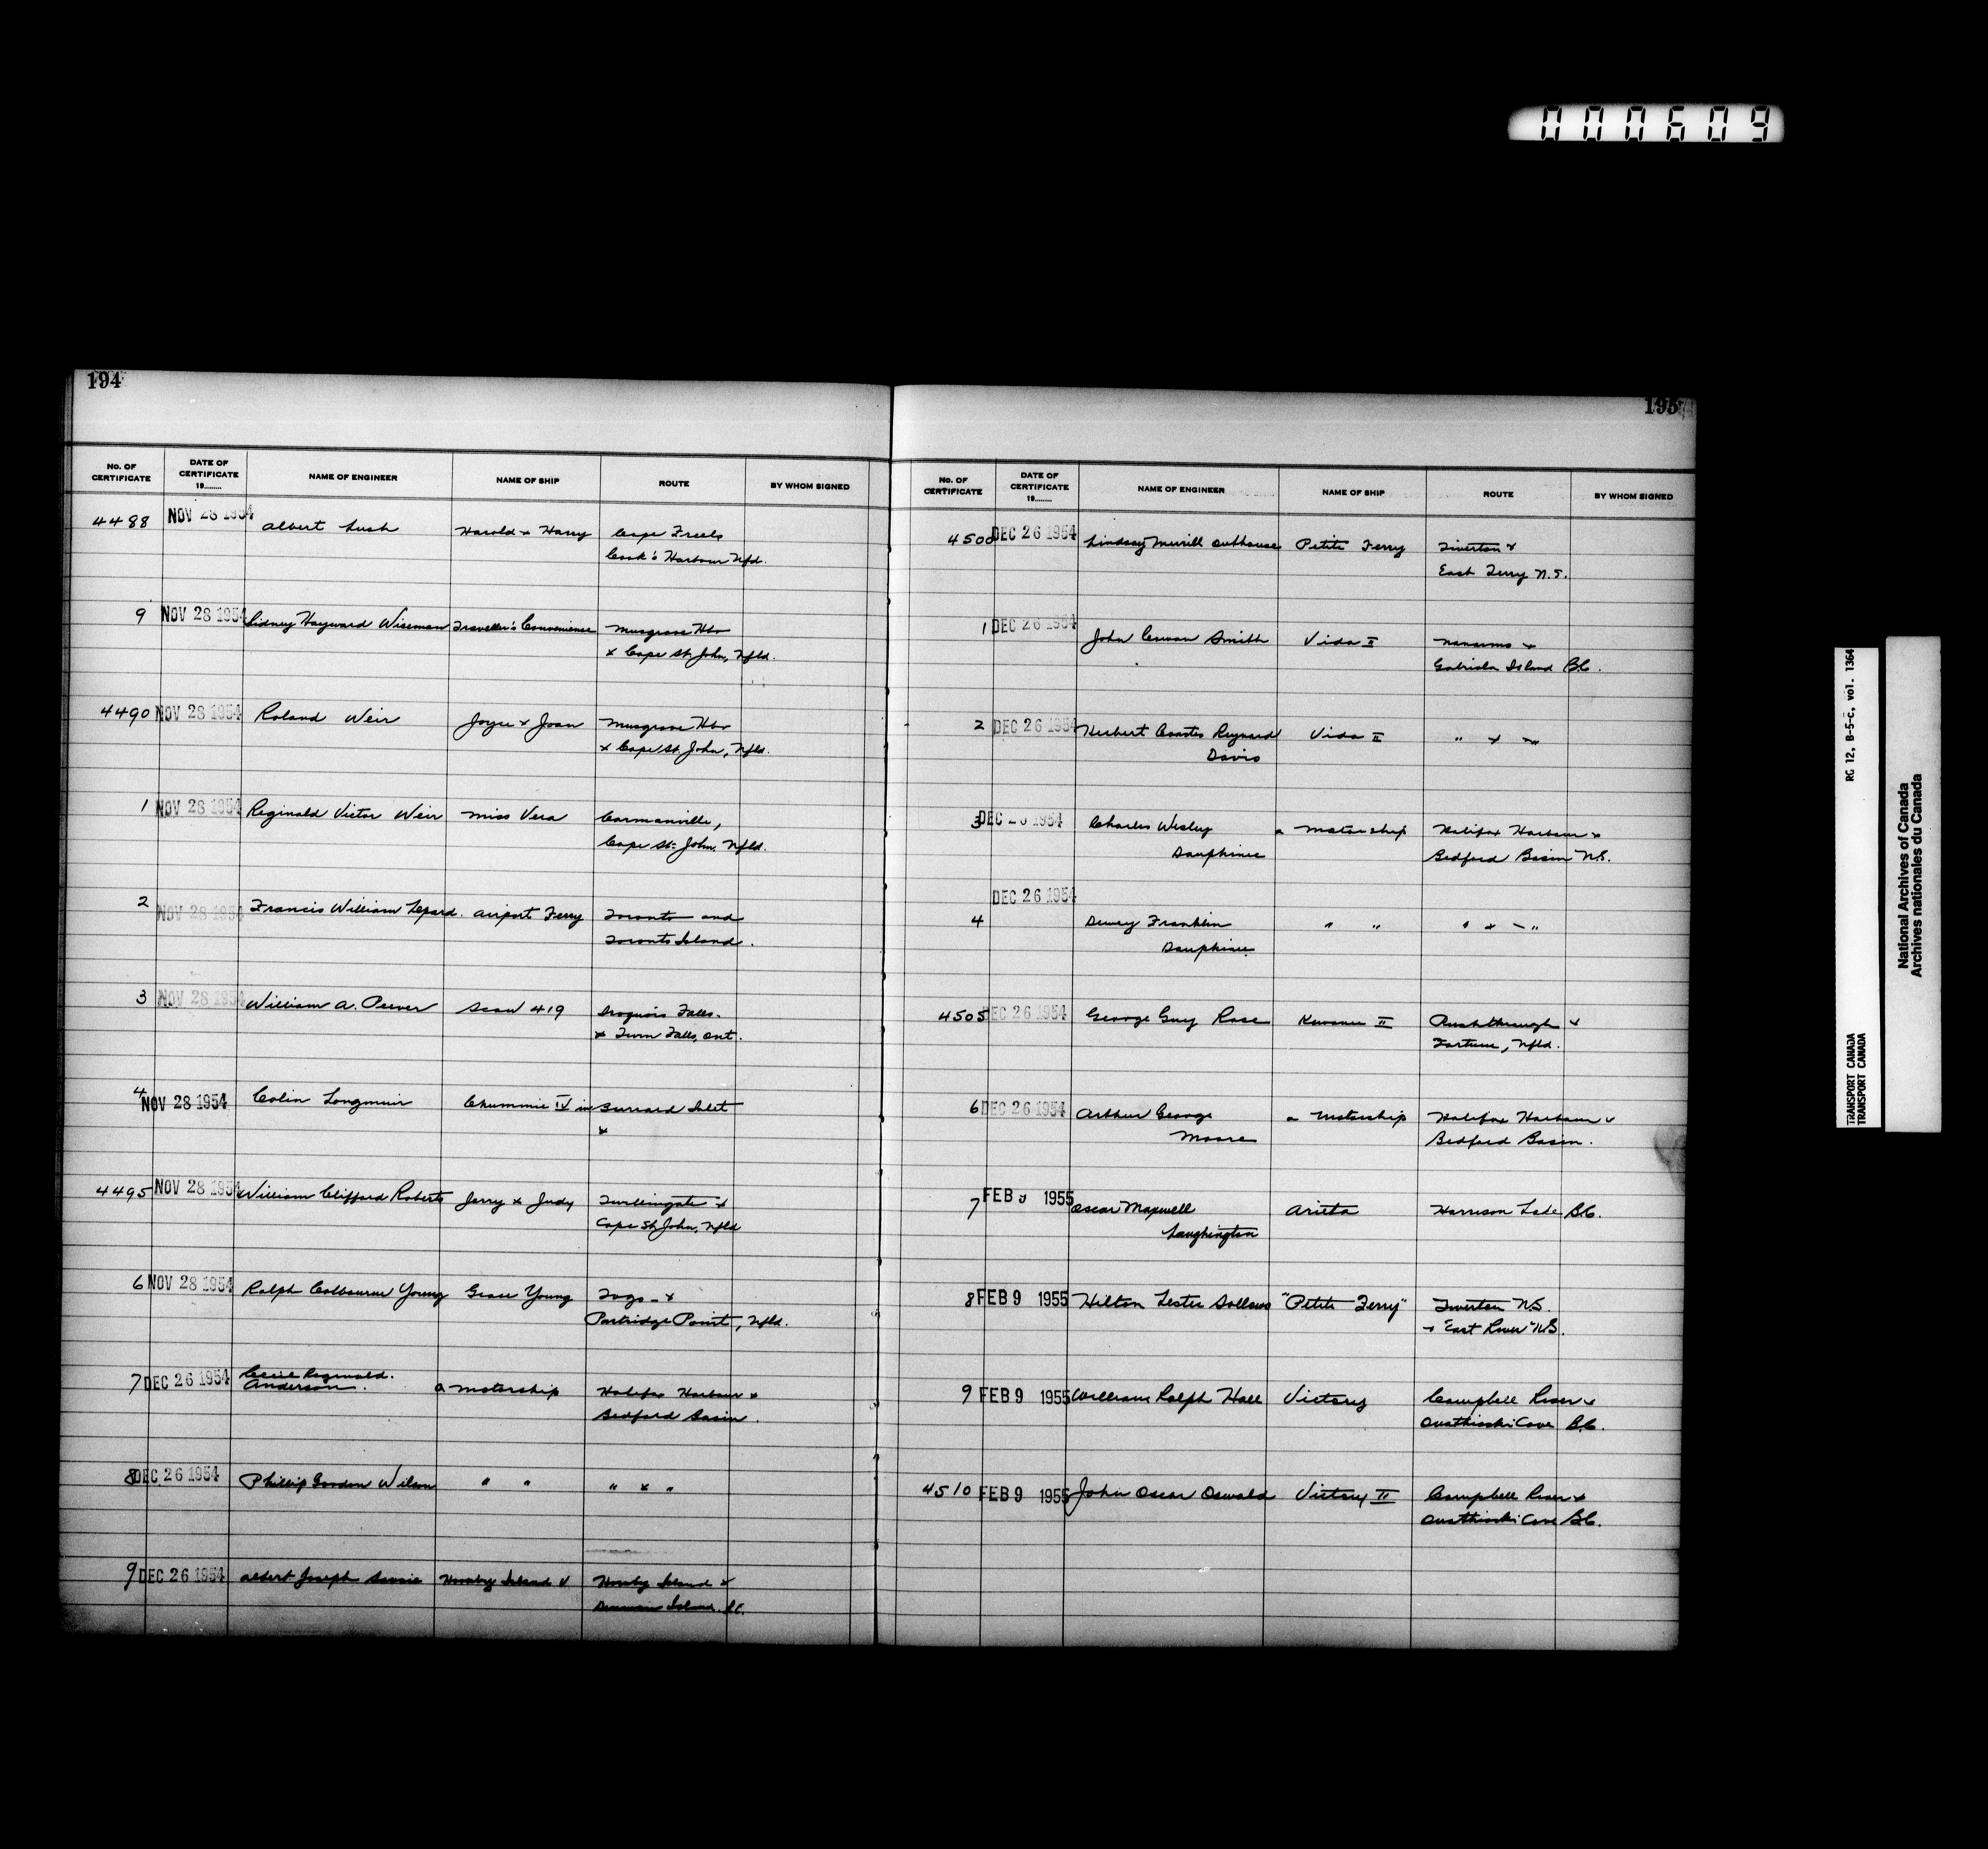 000609
194
No. OF CERTIFICATE DATE OF CERTIFICATE 19........ NAME OF ENGINEER NAME OF SHIP ROUTE BY WHOM SIGNED
4488 NOV 28 1954 Albert Lush Harold & Harry Cape Freels
Cook's Harbour Nfd.
9 NOV 28 1954 Sidney Hayward Wiseman Traveller's Convenience Musgrove Hbr
& Cape St. John, Nfld.
4490 NOV 28 1954 Roland Weir Joyce & Joan Musgrove Hbr
& Cape St. John, Nfld.
1 NOV 28 1954 Reginald Victor Weir Miss Vera Carmanville,
Cape St. John, Nfld.
2 NOV 28 1954 Francis William Lepard. Airport Ferry Toronto and
Toronto Island.
3 NOV 28 1954 William A. Peever Scow 419 Iroquois Falls.
& Twin Falls, Ont.
4 NOV 28 1954 Colin Longmuir Chummie IV in Burrard Inlet
&
4495 NOV 28 1954 William Clifford Roberts Jerry & Judy Twillingate &
Cape St. John, Nfld
6 NOV 28 1954 Ralph Colbourne Young Grace Young Fogo &
Partridge Point, Nfld.
7 DEC 26 1954 Cecil Reginald.
Anderson. a motorship Halifax Harbour &
Bedford Basin.
8 DEC 26 1954 Phillip Gordon Wilson " " " & "
9 DEC 26 1954 Albert Joseph Savoie Hornby Island V Hornby Island &
Denman Island. B.C.
195
No. OF CERTIFICATE DATE OF CERTIFICATE 19........ NAME OF ENGINEER NAME OF SHIP ROUTE BY WHOM SIGNED
4500 DEC 26 1954 Lindsay Merrill Outhouse Petite Ferry Tiverton &
East Ferry N.S.
1 DEC 26 1954 John Smith Vida II Nanaimo &
Gabriola Island B.C.
2 DEC 26 1954 Herbert Coates Reynard
Davis Vida II " & "
3 DEC 26 1954 Charles Wesley
Dauphinee a motorship Halifax Harbour &
Bedford Basin N.S.
4 DEC 26 1954 Dewey Franklin
Dauphinee " " " & "
4505 DEC 26 1954 George Guy Rose II Pushthrough &
Fortune, Nfld.
6 DEC 26 1954 Arthur George
Moore a motorship Halifax Harbour &
Bedford Basin.
7 FEB 9 1955 Oscar Maxwell
Laughington Arieta Harrison Lake B.C.
8 FEB 9 1955 Hilton Lester Sollows "Petite Ferry" Tiverton N.S.
& East River N.S.
9 FEB 9 1955 William Ralph Hall Victory Campbell River &
Quathiaski Cove B.C.
4510 FEB 9 1955 John Oscar Oswald Victory II Campbell River &
Quathiaski Cove B.C.
RG 12, B-5-c, vol. 1364
TRANSPORT CANADA
TRANSPORT CANADA
National Archives of Canada
Archives nationales du Canada